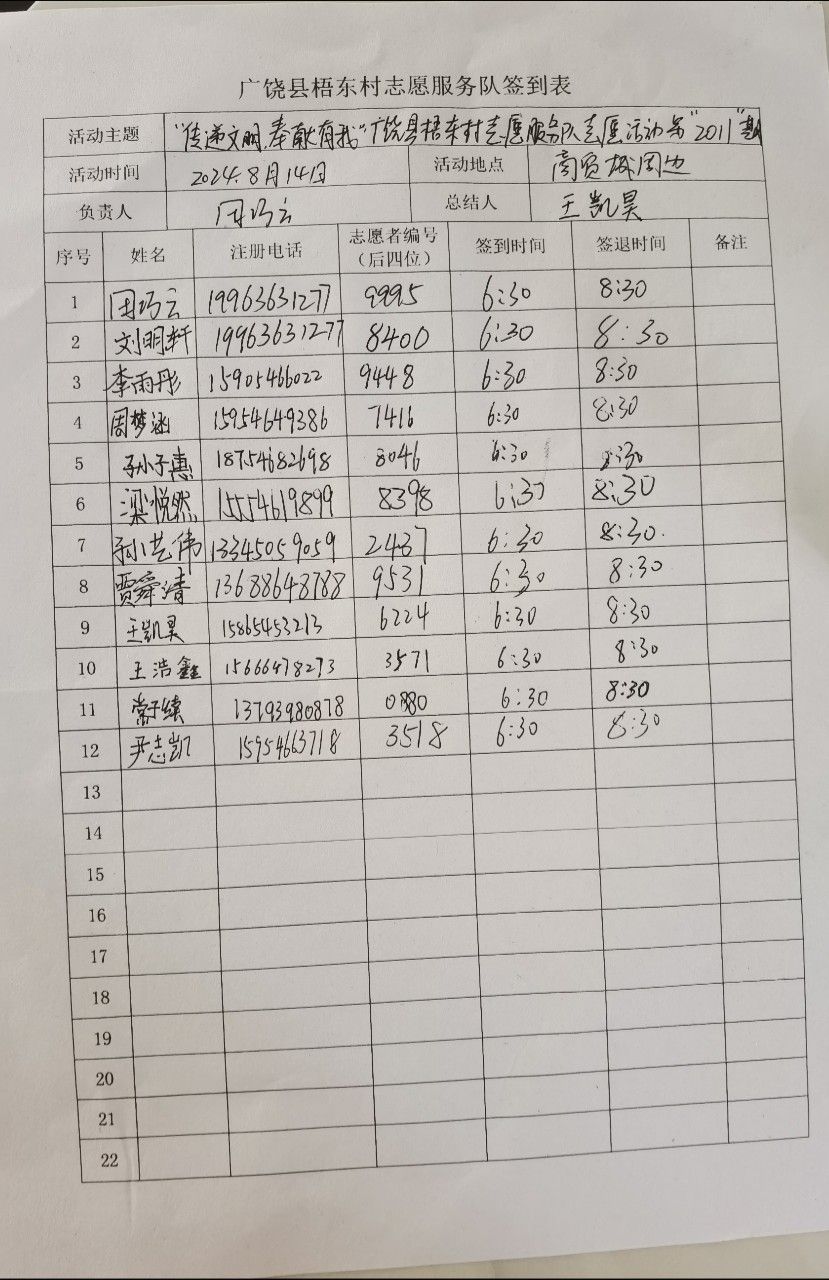 广饶县梧东村志愿服务队签到表
活动主题 "传递文明,奉献有我"广饶县梧东村志愿服务队志愿活动第"2011"期
活动时间 2024.8月14日 活动地点 商贸城周边
负责人 田巧云 总结人 王凯昊
序号 姓名 注册电话 志愿者编号（后四位） 签到时间 签退时间 备注
1 田巧云 19963631277 9995 6:30 8:30
2 刘明轩 19963631277 8400 6:30 8:30
3 李雨彤 15905466022 9448 6:30 8:30
4 周梦涵 15954649386 7416 6:30 8:30
5 孙子惠 18754682698 8046 6:30 8:30
6 梁悦然 15554619899 8398 6:30 8:30
7 孙艺伟 13345059059 2437 6:30 8:30.
8 贾舜清 13688648788 9531 6:30 8:30
9 王凯昊 15865453213 6224 6:30 8:30
10 王浩鑫 15666478273 3571 6:30 8:30
11 常子续 13793980878 0880 6:30 8:30
12 尹志凯 15954663718 3518 6:30 8:30
13
14
15
16
17
18
19
20
21
22